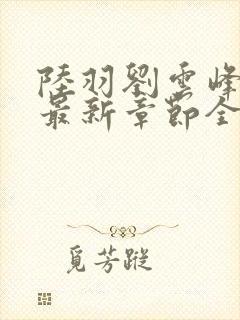 陸羽劉雲峰
最新章節全
覓芳蹤